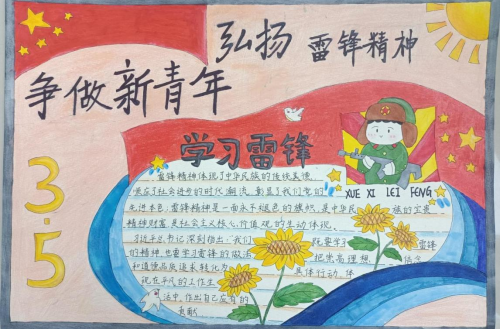 弘扬 雷锋精神
争做新青年
学习雷锋
3.5
XUE XI LEI FENG
雷锋精神体现了中华民族的传统美德,
顺应了社会进步的时代潮流,彰显了我们党的
先进本色;雷锋精神是一面永不褪色的旗帜,是中华民 族的宝贵
精神财富,是社会主义核心价值观的生动体现。
习近平总书记深刻指出:“我们 既要学习 雷锋
的精神,也要学习雷锋的做法 把崇高理想 信念
和道德品质追求转化为 具体行动,体
现在平凡的工作生
活中,作出自己应有的
贡献